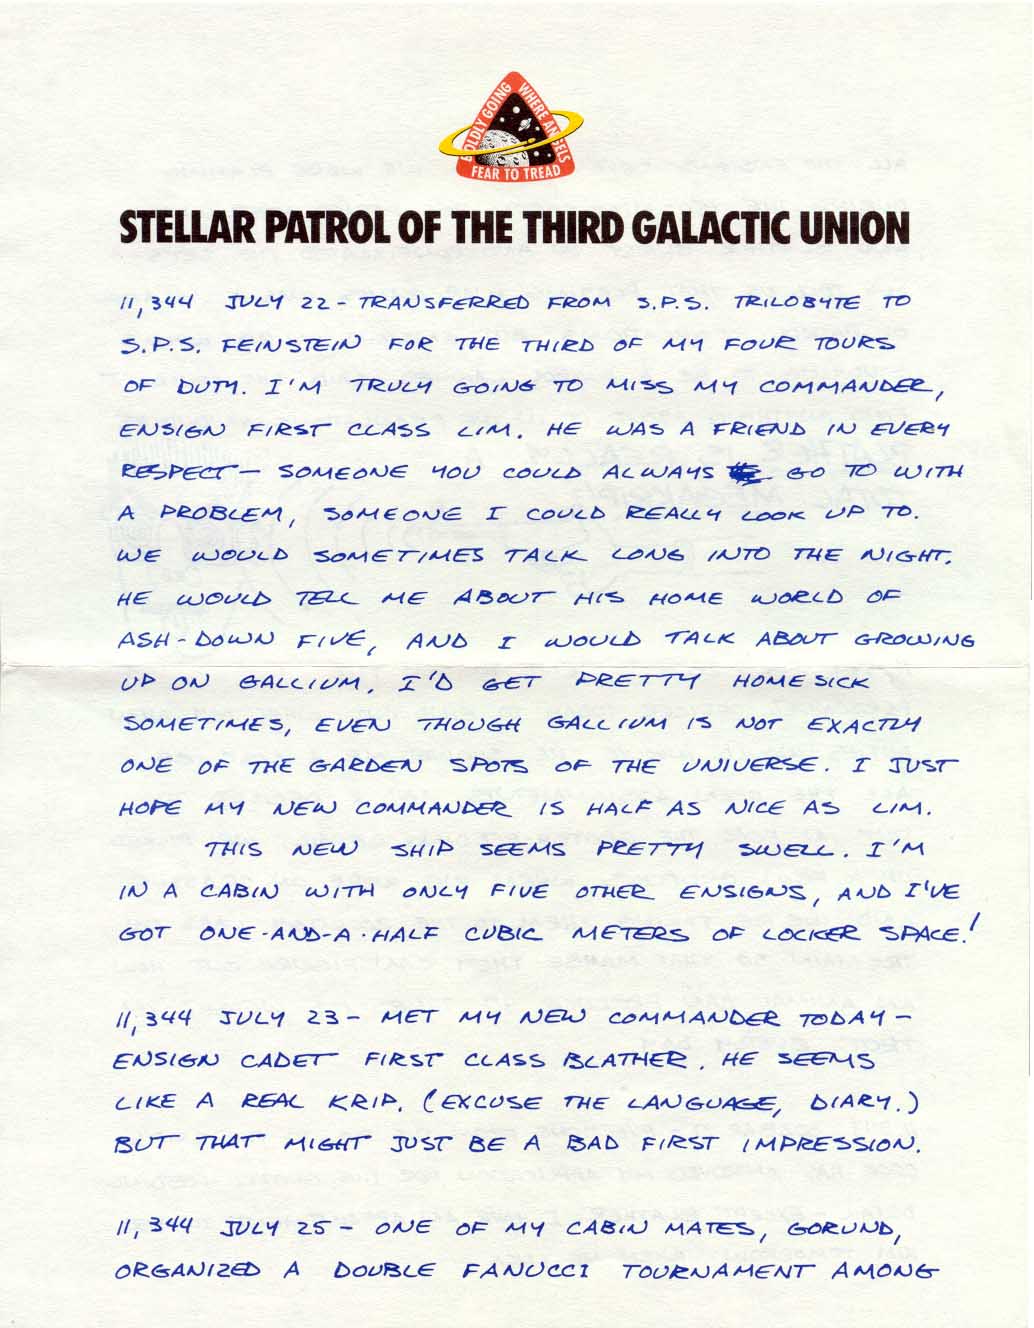 BOLDLY GOING WHERE ANGELS FEAR TO TREAD
STELLAR PATROL OF THE THIRD GALACTIC UNION
11,344 JULY 22 - TRANSFERRED FROM S.P.S. TRILOBYTE TO
S.P.S. FEINSTEIN FOR THE THIRD OF MY FOUR TOURS
OF DUTY. I'M TRULY GOING TO MISS MY COMMANDER,
ENSIGN FIRST CLASS LIM. HE WAS A FRIEND IN EVERY
RESPECT - SOMEONE YOU COULD ALWAYS GO TO WITH
A PROBLEM, SOMEONE I COULD REALLY LOOK UP TO.
WE WOULD SOMETIMES TALK LONG INTO THE NIGHT.
HE WOULD TELL ME ABOUT HIS HOME WORLD OF
ASH-DOWN FIVE, AND I WOULD TALK ABOUT GROWING
UP ON GALLIUM. I'D GET PRETTY HOMESICK
SOMETIMES, EVEN THOUGH GALLIUM IS NOT EXACTLY
ONE OF THE GARDEN SPOTS OF THE UNIVERSE. I JUST
HOPE MY NEW COMMANDER IS HALF AS NICE AS LIM.
THIS NEW SHIP SEEMS PRETTY SWELL. I'M
IN A CABIN WITH ONLY FIVE OTHER ENSIGNS, AND I'VE
GOT ONE-AND-A-HALF CUBIC METERS OF LOCKER SPACE!
11,344 JULY 23 - MET MY NEW COMMANDER TODAY -
ENSIGN CADET FIRST CLASS BLATHER. HE SEEMS
LIKE A REAL KRIP. (EXCUSE THE LANGUAGE, DIARY.)
BUT THAT MIGHT JUST BE A BAD FIRST IMPRESSION.
11,344 JULY 25 - ONE OF MY CABIN MATES, GORUND,
ORGANIZED A DOUBLE FANUCCI TOURNAMENT AMONG